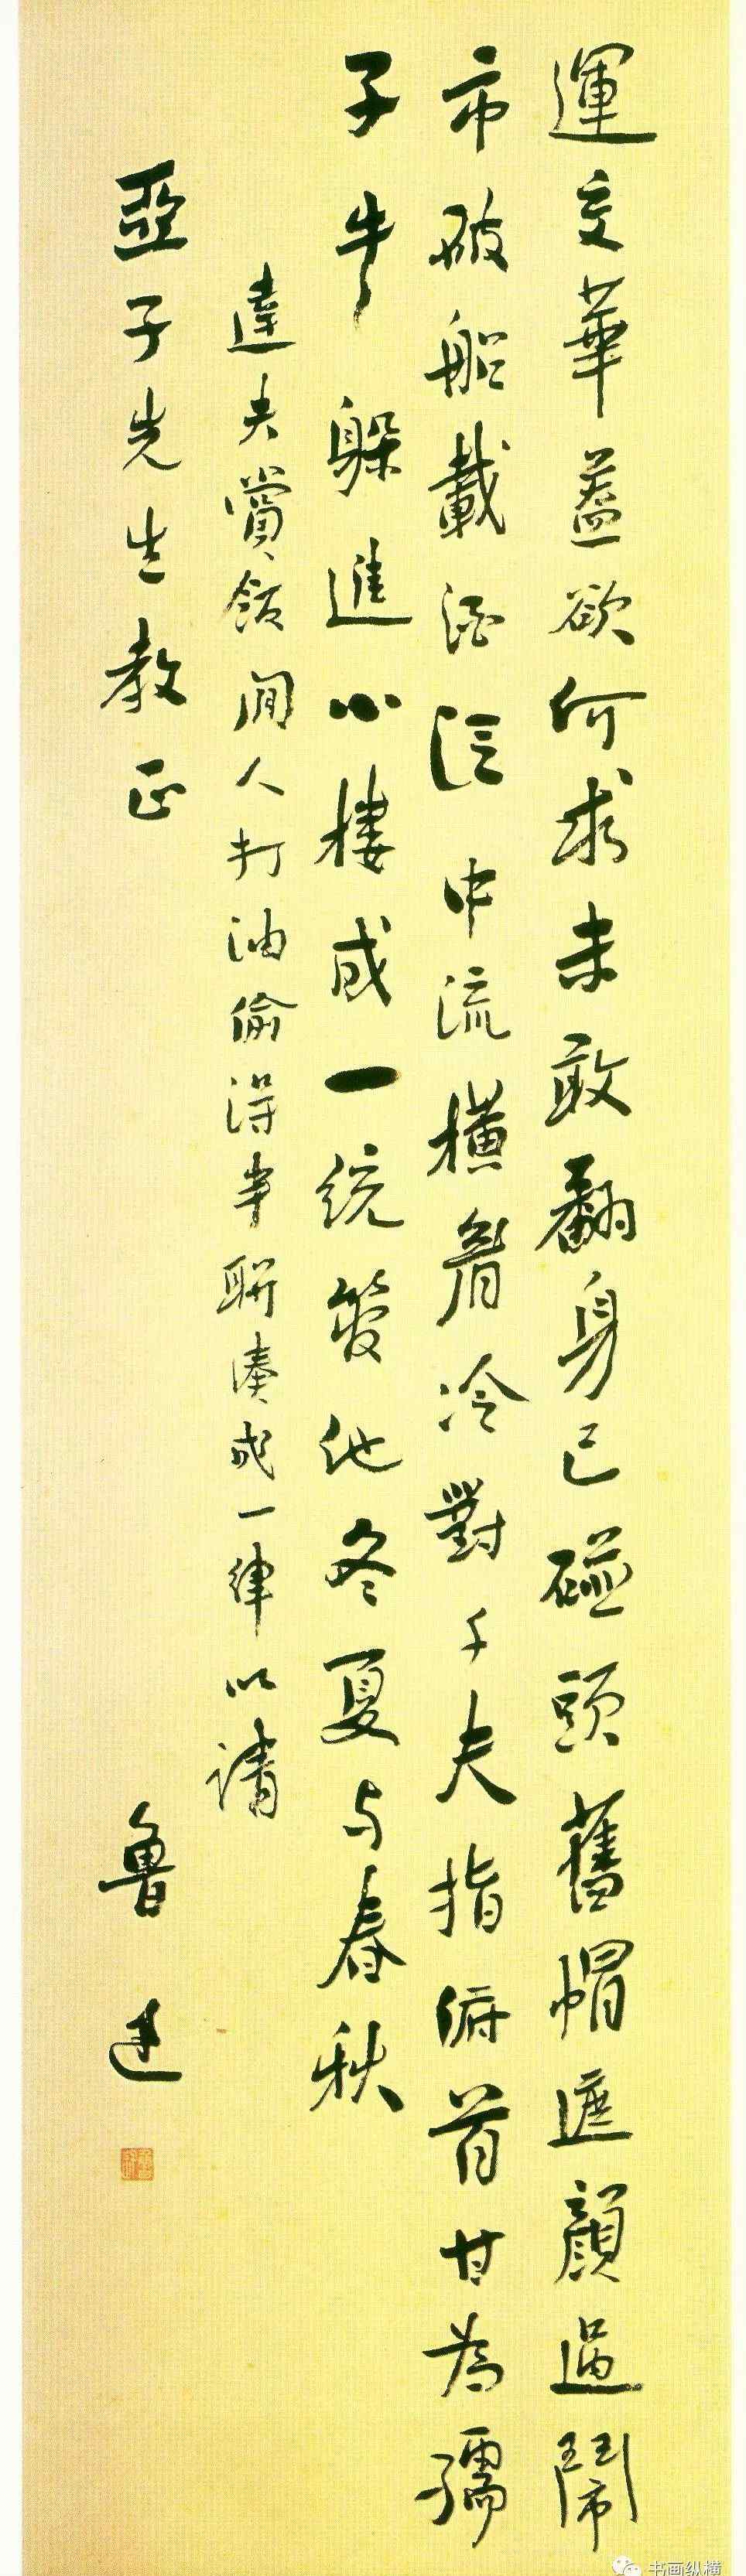 運交華蓋欲何求未敢翻身已碰頭舊帽遮顏過鬧
市破船載酒泛中流橫眉冷對千夫指俯首甘為孺
子牛躲進小樓成一統管他冬夏与春秋
達夫賞飯閒人打油偷得半聯湊成一律以請
亞子先生教正
魯迅
书画纵横